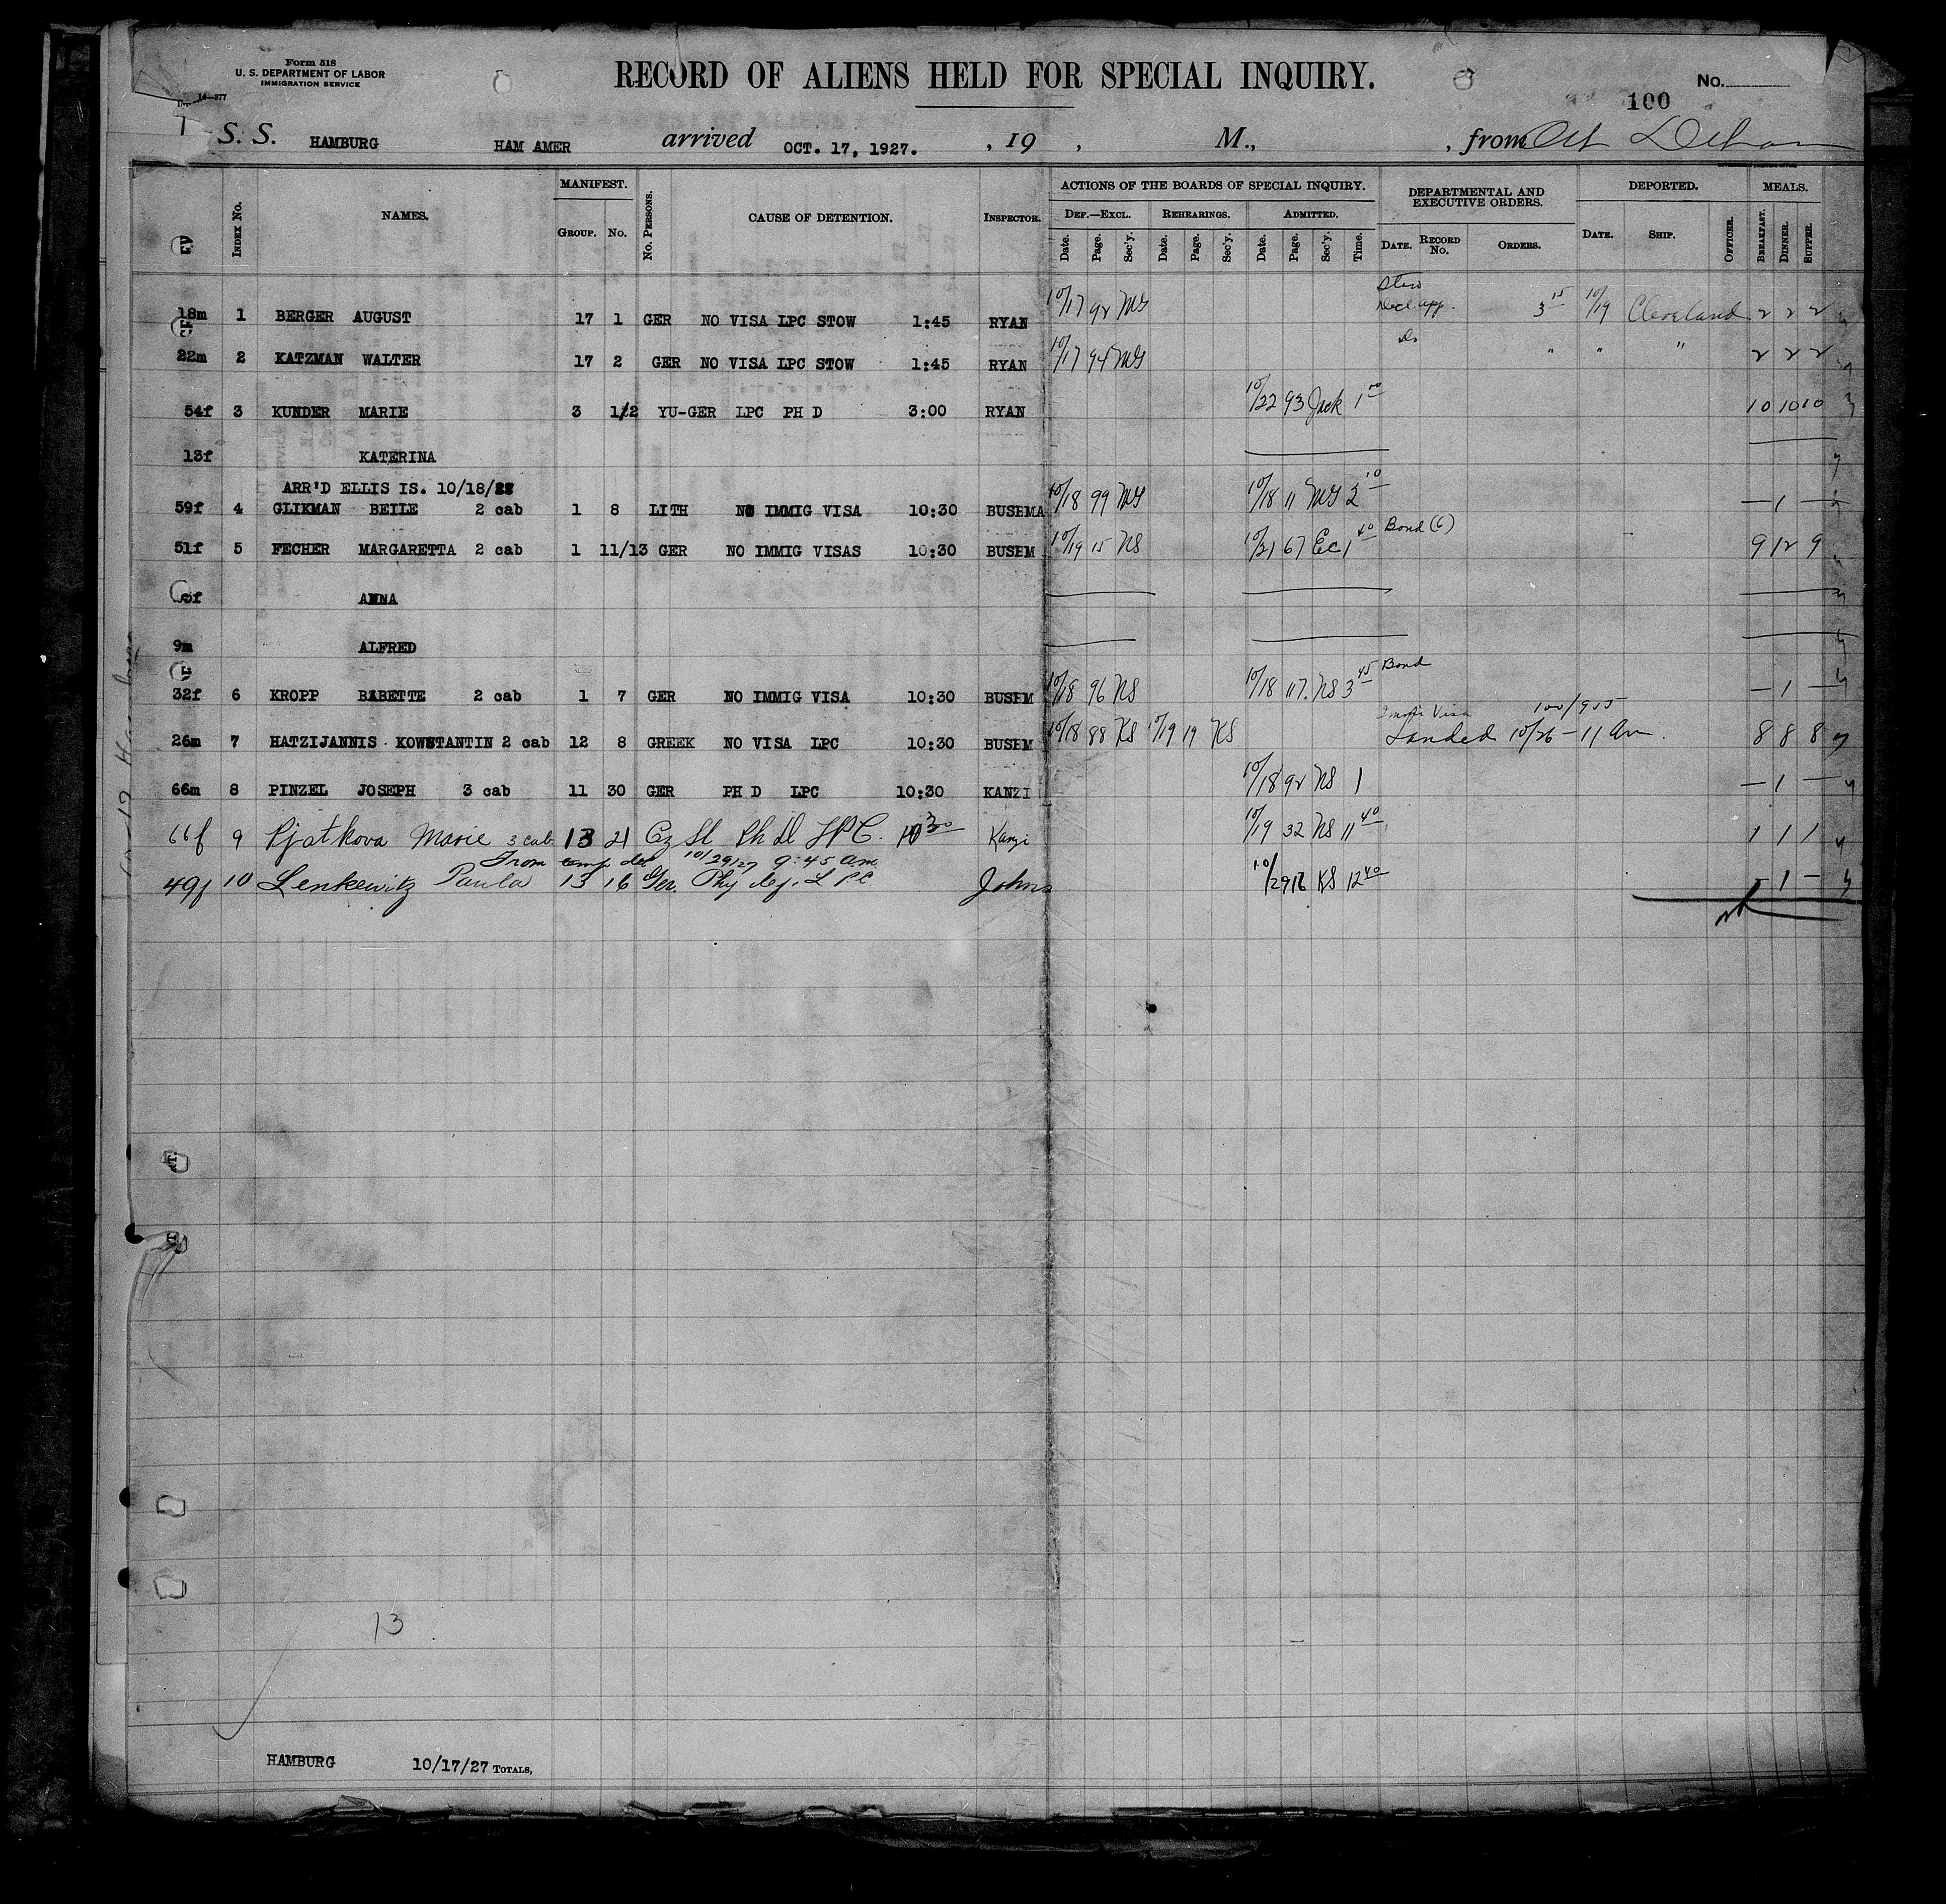 Form 518
U. S. DEPARTMENT OF LABOR
IMMIGRATION SERVICE
RECORD OF ALIENS HELD FOR SPECIAL INQUIRY.
No.
100
S. S. HAMBURG HAM AMER arrived OCT. 17, 1927. , 19 , M., , from
INDEX No. NAMES. MANIFEST. GROUP. No. No. PERSONS. CAUSE OF DETENTION. INSPECTOR. ACTIONS OF THE BOARDS OF SPECIAL INQUIRY. DEF.—EXCL. REHEARINGS. ADMITTED. DEPARTMENTAL AND EXECUTIVE ORDERS. DEPORTED. MEALS.
Date. Page. Sec'y. Date. Page. Sec'y. Date. Page. Sec'y. Time. DATE. RECORD No. ORDERS. DATE. SHIP. OFFICER. BREAKFAST. DINNER. SUPPER.
18m 1 BERGER AUGUST 17 1 GER NO VISA LPC STOW 1:45 RYAN 10/17 92 MS 3 15 10/19 Cleveland 2 2 2
22m 2 KATZMAN WALTER 17 2 GER NO VISA LPC STOW 1:45 RYAN 10/17 94 MS Do " " " 2 2 2
54f 3 KUNDER MARIE 3 1/2 YU-GER LPC PH D 3:00 RYAN 10/22 93 Jack 1 00 10 10 10
13f KATERINA
ARR'D ELLIS IS. 10/18/27
59f 4 GLIKMAN BEILE 2 cab 1 8 LITH NO IMMIG VISA 10:30 BUSEMA 10/18 99 MS 10/18 11 MS 2 10 — 1 —
51f 5 FECHER MARGARETTA 2 cab 1 11/13 GER NO IMMIG VISAS 10:30 BUSEM 10/19 15 NS 10/21 67 EC 1 40 Bond (6) 9 12 9
ANNA
9m ALFRED
32f 6 KROPP BABETTE 2 cab 1 7 GER NO IMMIG VISA 10:30 BUSEM 10/18 96 NS 10/18 117 NS 3 45 Bond — 1 —
26m 7 HATZIJANNIS KOWSTANTIN 2 cab 12 8 GREEK NO VISA LPC 10:30 BUSEM 10/18 88 KS 10/19 19 KS Visa Landed 10/26 - 11 Am. 8 8 8
66m 8 PINZEL JOSEPH 3 cab 11 30 GER PH D LPC 10:30 KANZI 10/18 92 NS 1 — 1 —
66f 9 Pjatkova Marie 3 cab 13 21 Cz Sl Ph D LPC. Kanzi 10/19 32 NS 11 40 1 1 1
From temp det 10/29/27 9:45 am
49f 10 Lenkewitz Paula 13 16 Ger. Phy def. L P C Johns 10/29 18 KS 12 40 — 1 —
13
HAMBURG 10/17/27 TOTALS,